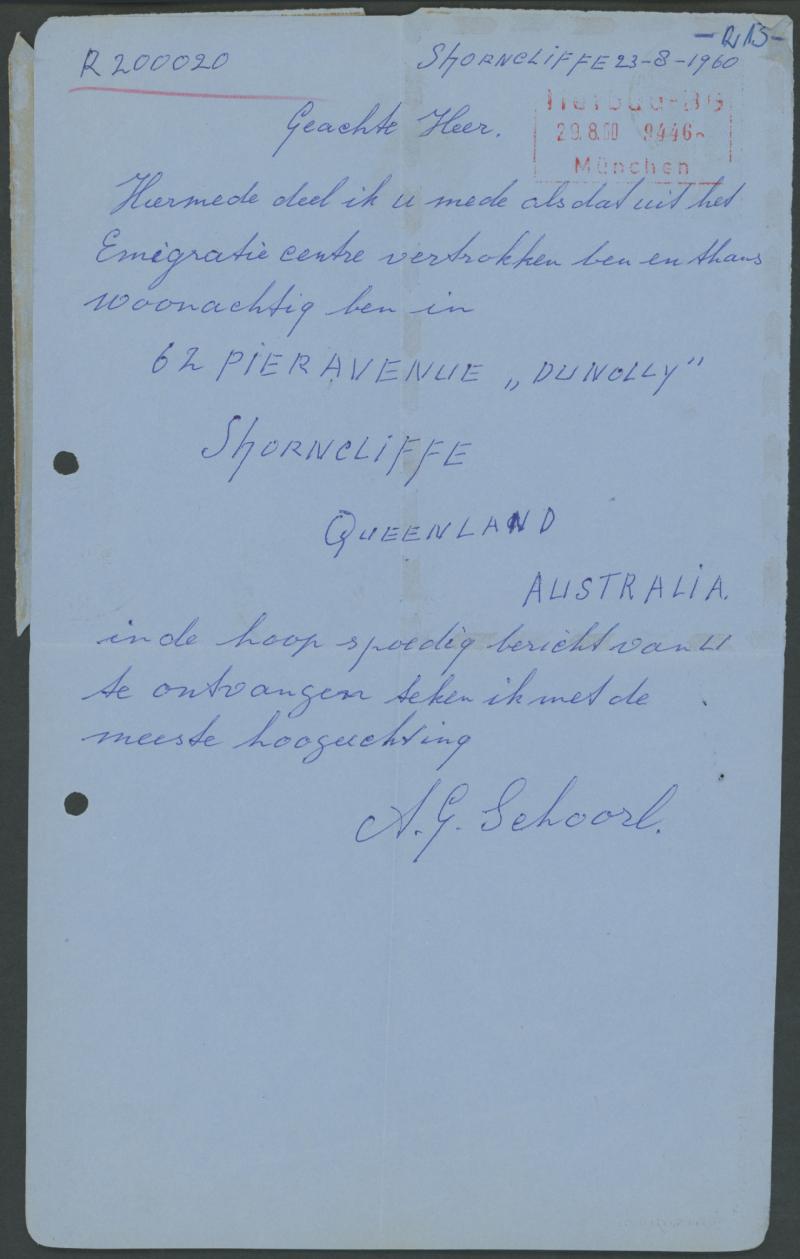 R 200020
SHORNCLIFFE 23-8-1960
29.8.60 9446
München
Geachte Heer.
Hiermede deel ik u mede als dat uit het
Emigratie centre vertrokken ben en thans
woonachtig ben in
62 PIER AVENUE „DUNOLLY"
SHORNCLIFFE
QUEENLAND
AUSTRALIA.
in de hoop spoedig bericht van U
te ontvangen teken ik met de
meeste hoogachting
A.G. Schoorl.